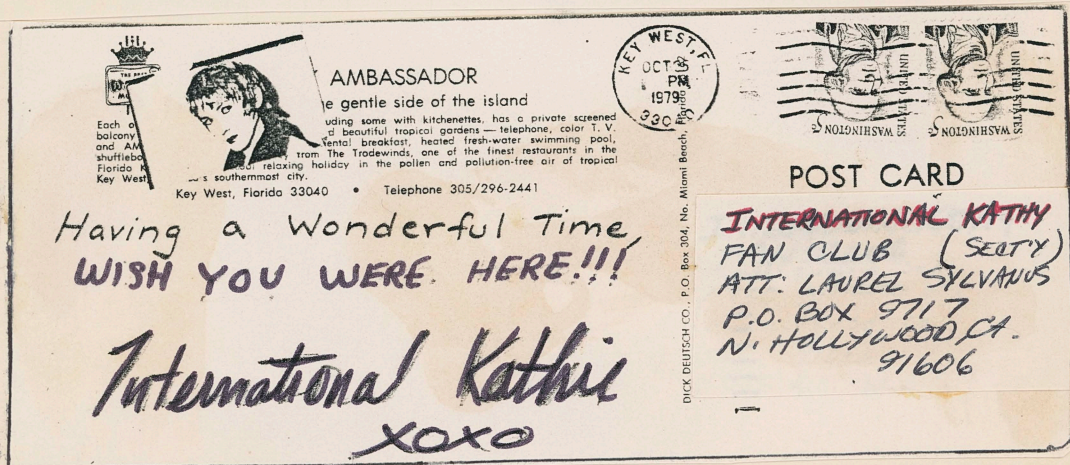 AMBASSADOR
e gentle side of the island
Each o
uding some with kitchenettes, has a private screened
balcony
d beautiful tropical gardens — telephone, color T. V.
and AM
ental breakfast, heated fresh-water swimming pool,
shufflebo
from The Tradewinds, one of the finest restaurants in the
Florida K
relaxing holiday in the pollen and pollution-free air of tropical
Key West,
southernmost city.
Key West, Florida 33040 • Telephone 305/296-2441
Having a Wonderful Time,
WISH YOU WERE HERE!!!
International Kathie
XOXO
DICK DEUTSCH CO., P.O. Box 304, No. Miami Beach, Florida
KEY WEST, FL
OCT
PM
1979
330
UNITED STATES
WASHINGTON
UNITED STATES
WASHINGTON
POST CARD
INTERNATIONAL KATHY
FAN CLUB (SECT'Y)
ATT: LAUREL SYLVANUS
P.O. BOX 9717
N. HOLLYWOOD, CA.
91606